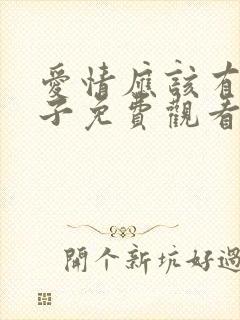 愛情應該有
子免費觀看
開個新坑好過